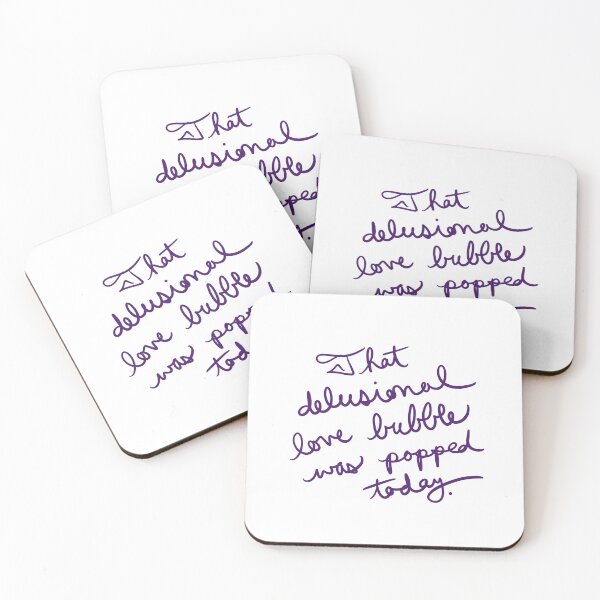 That
delusional
That
delusional
love bubble
was popped
That
delusional
love bubble
was
That
delusional
love bubble
was popped
today.